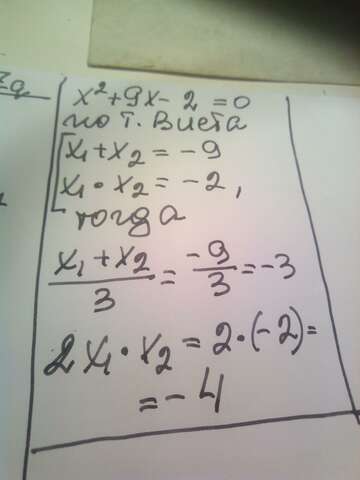 x² + 9x - 2 = 0
по т. Виета
x₁ + x₂ = -9
x₁ · x₂ = -2,
тогда
(x₁ + x₂)/3 = -9/3 = -3
2x₁ · x₂ = 2 · (-2) =
= -4